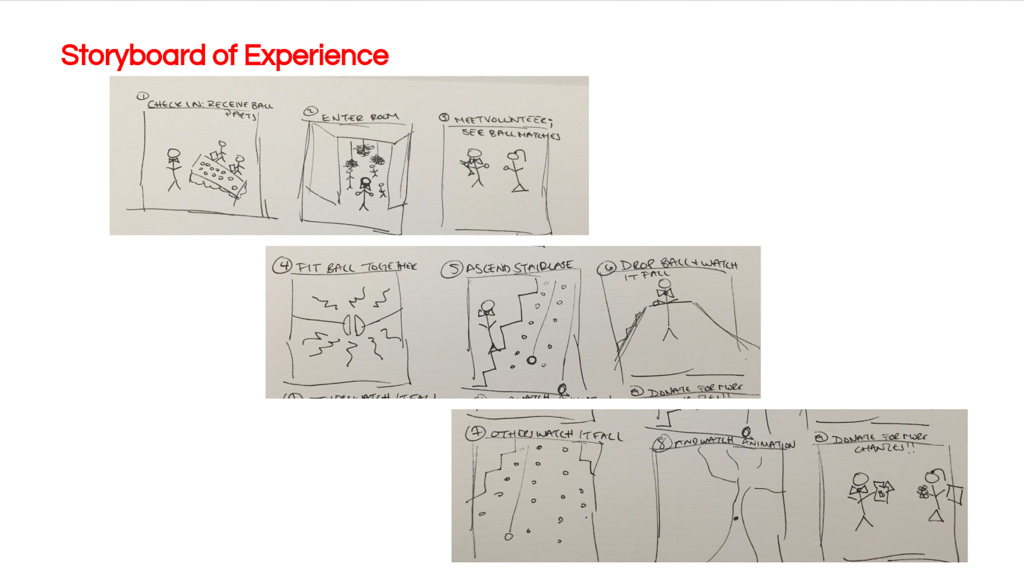 Storyboard of Experience
① CHECK IN: RECEIVE BALL
PARTS
② ENTER ROOM
③ MEET VOLUNTEER;
SEE BALL MATCHES
④ FIT BALL TOGETHER
⑤ ASCEND STAIRCASE
⑥ DROP BALL + WATCH
IT FALL
⑨ DONATE FOR MORE
⑦ OTHERS WATCH IT FALL
⑧ AND WATCH ANIMATION
⑨ DONATE FOR MORE
CHANCES!!